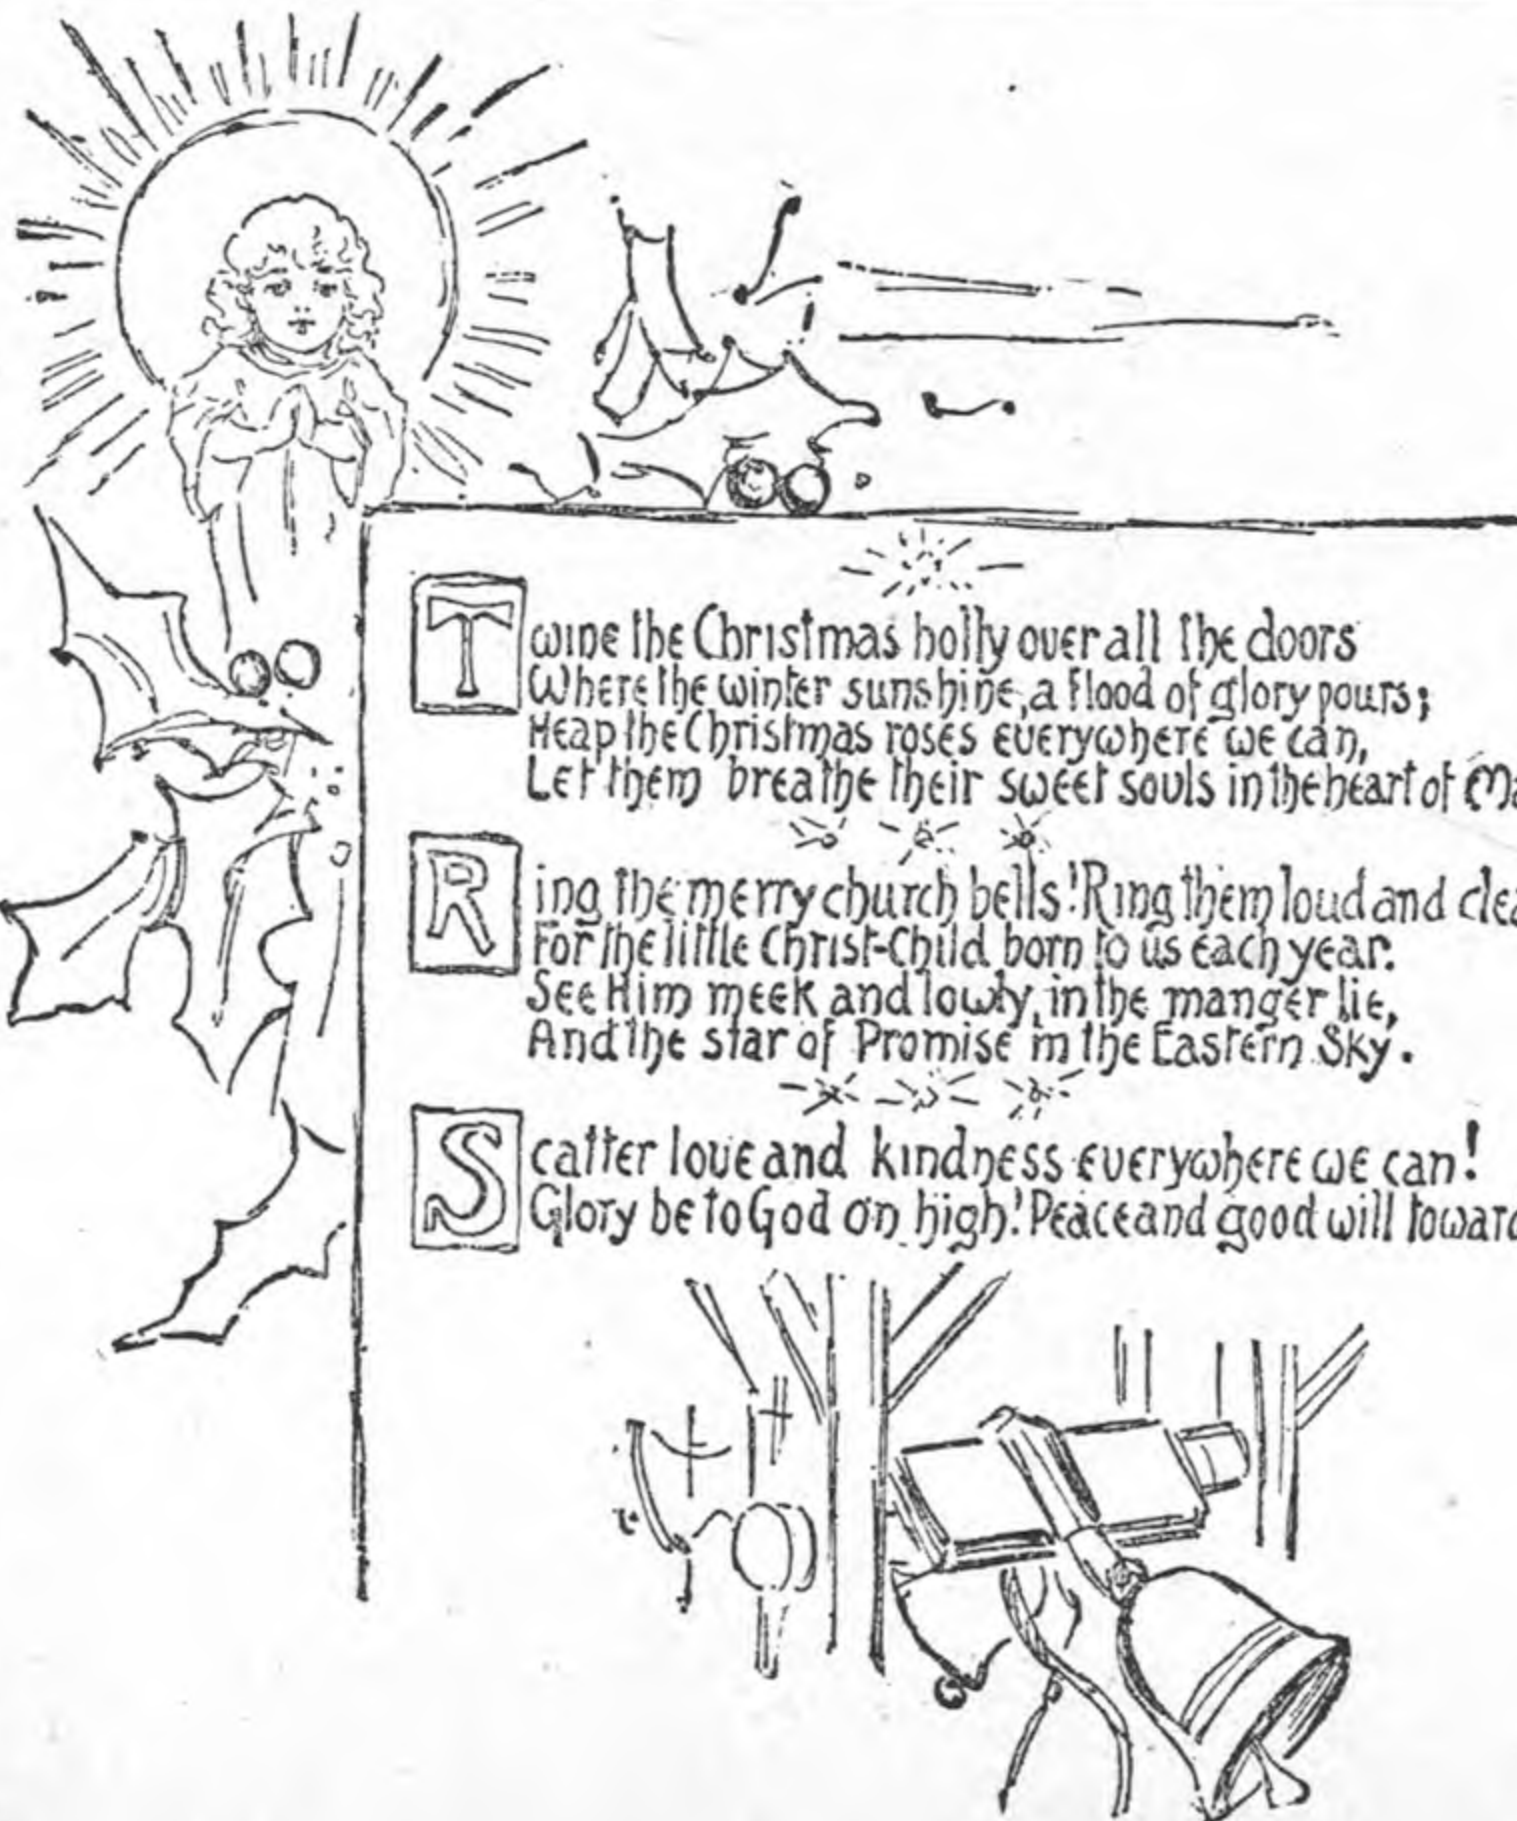 Twine the Christmas holly over all the doors
Where the winter sunshine, a flood of glory pours;
Heap the Christmas roses everywhere we can,
Let them breathe their sweet souls in the heart of Ma
Ring the merry church bells! Ring them loud and clea
For the little Christ-Child born to us each year.
See Him meek and lowly, in the manger lie,
And the star of Promise in the Eastern Sky.
Scatter love and kindness everywhere we can!
Glory be to God on high! Peace and good will toward